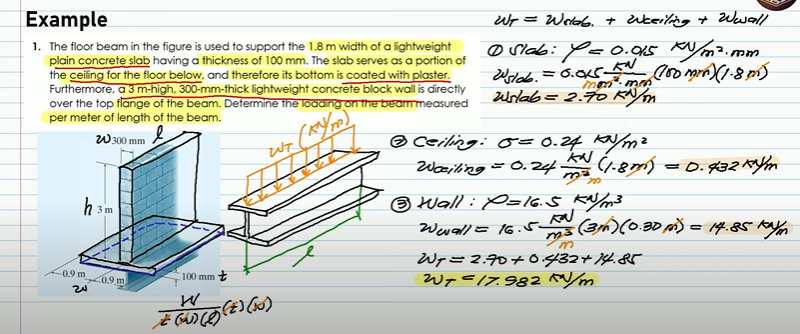 Example
1. The floor beam in the figure is used to support the 1.8 m width of a lightweight
plain concrete slab having a thickness of 100 mm. The slab serves as a portion of
the ceiling for the floor below, and therefore its bottom is coated with plaster.
Furthermore, a 3 m-high, 300-mm-thick lightweight concrete block wall is directly
over the top flange of the beam. Determine the loading on the beam measured
per meter of length of the beam.
w 300 mm l
h 3 m
0.9 m
0.9 m
w
100 mm t
W
t (w) (l) (t) (w)
WT (KN/m)
l
WT = Wslab. + Wceiling + Wwall
① Slab: ρ = 0.015 KN/m².mm
Wslab. = 0.015 KN/m².mm (100 mm)(1.8 m)
Wslab = 2.70 KN/m
② Ceiling: σ = 0.24 KN/m²
Wceiling = 0.24 KN/m² (1.8 m) = 0.432 KN/m
m
③ Wall: ρ = 16.5 KN/m³
Wwall = 16.5 KN/m³ (3m)(0.30 m) = 14.85 KN/m
m
WT = 2.70 + 0.432 + 14.85
WT = 17.982 KN/m